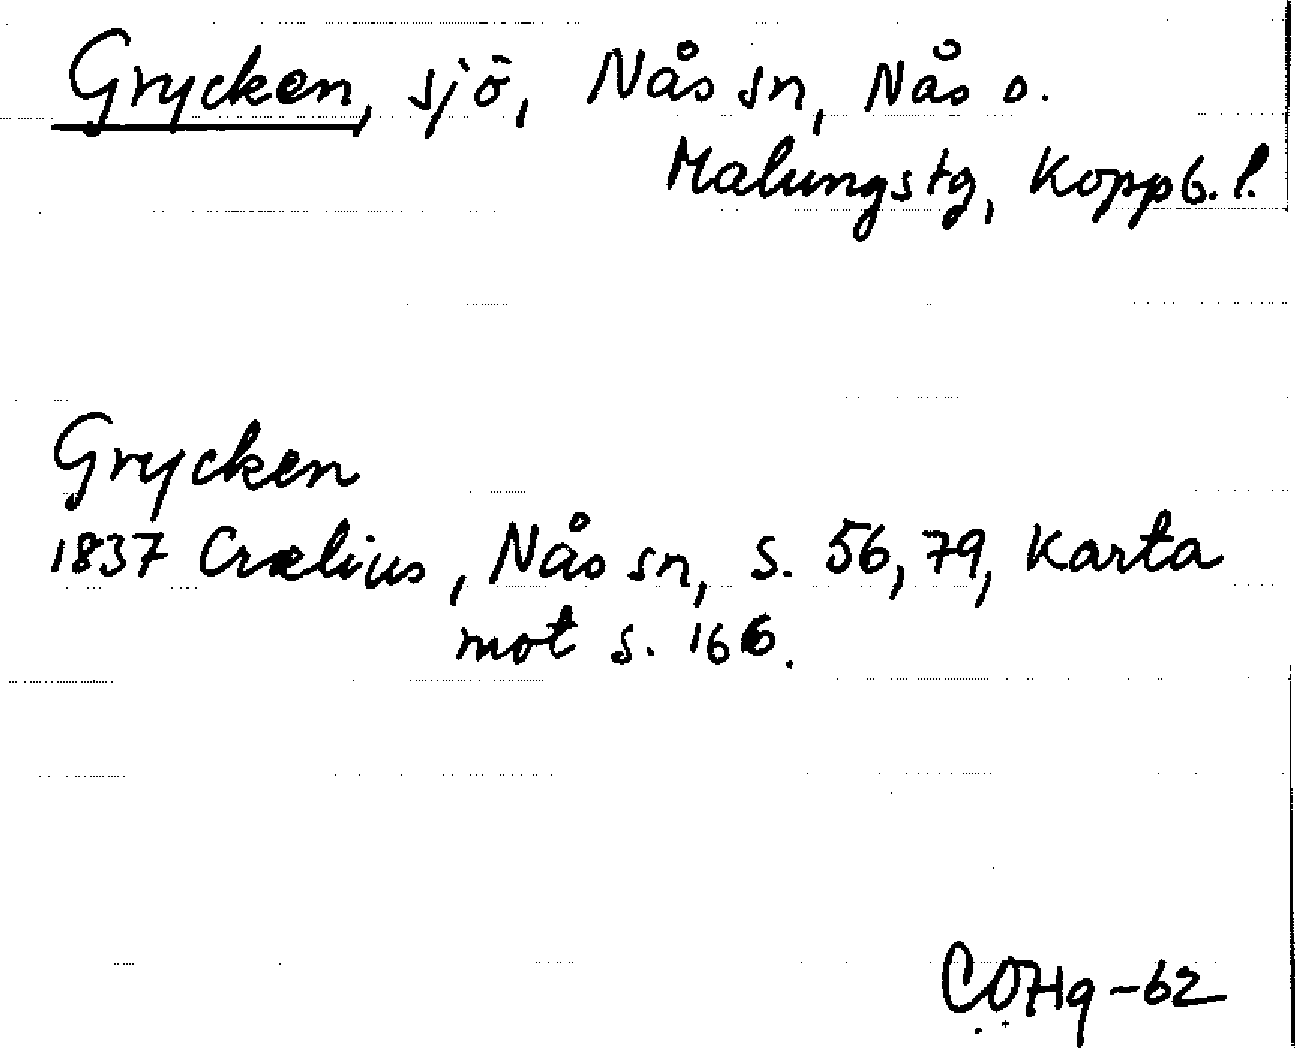 Grycken, sjö, Nås sn, Nås o.
Malungs tg, Koppb. l.
Grycken
1837 Crælius, Nås sn, s. 56, 79, Karta
mot s. 166.
COHq-62